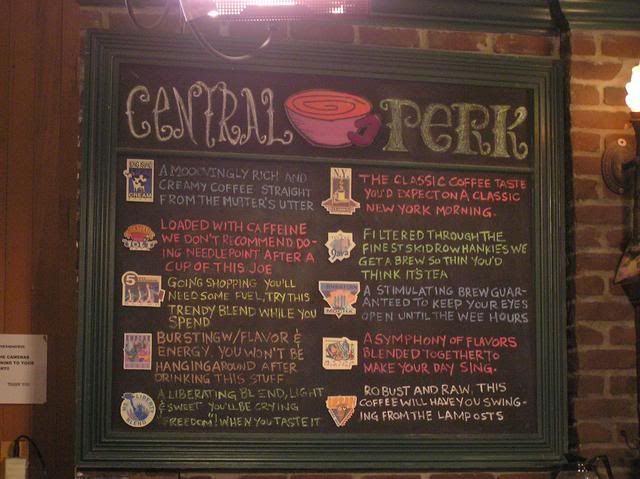 CENTRAL PERK
A MOOOVINGLY RICH AND
CREAMY COFFEE STRAIGHT
FROM THE MUTTER'S UTTER
LOADED WITH CAFFEINE
WE DON'T RECOMMEND DO-
ING NEEDLEPOINT AFTER A
CUP OF THIS JOE
GOING SHOPPING YOU'LL
NEED SOME FUEL, TRY THIS
TRENDY BLEND WHILE YOU
SPEND
BURSTING W/ FLAVOR &
ENERGY. YOU WON'T BE
HANGING AROUND AFTER
DRINKING THIS STUFF
A LIBERATING BLEND, LIGHT
& SWEET YOU'LL BE CRYING
"FREEDOM"! WHEN YOU TASTE IT
N.Y.
THE CLASSIC COFFEE TASTE
YOU'D EXPECT ON A CLASSIC
NEW YORK MORNING.
Java
FILTERED THROUGH THE
FINEST SKIDROW HANKIES WE
GET A BREW SO THIN YOU'D
THINK IT'S TEA
MOCHA
A STIMULATING BREW GUAR-
ANTEED TO KEEP YOUR EYES
OPEN UNTIL THE WEE HOURS
A SYMPHONY OF FLAVORS
BLENDED TOGETHER TO
MAKE YOUR DAY SING.
ROBUST AND RAW, THIS
COFFEE WILL HAVE YOU SWING-
ING FROM THE LAMPOSTS